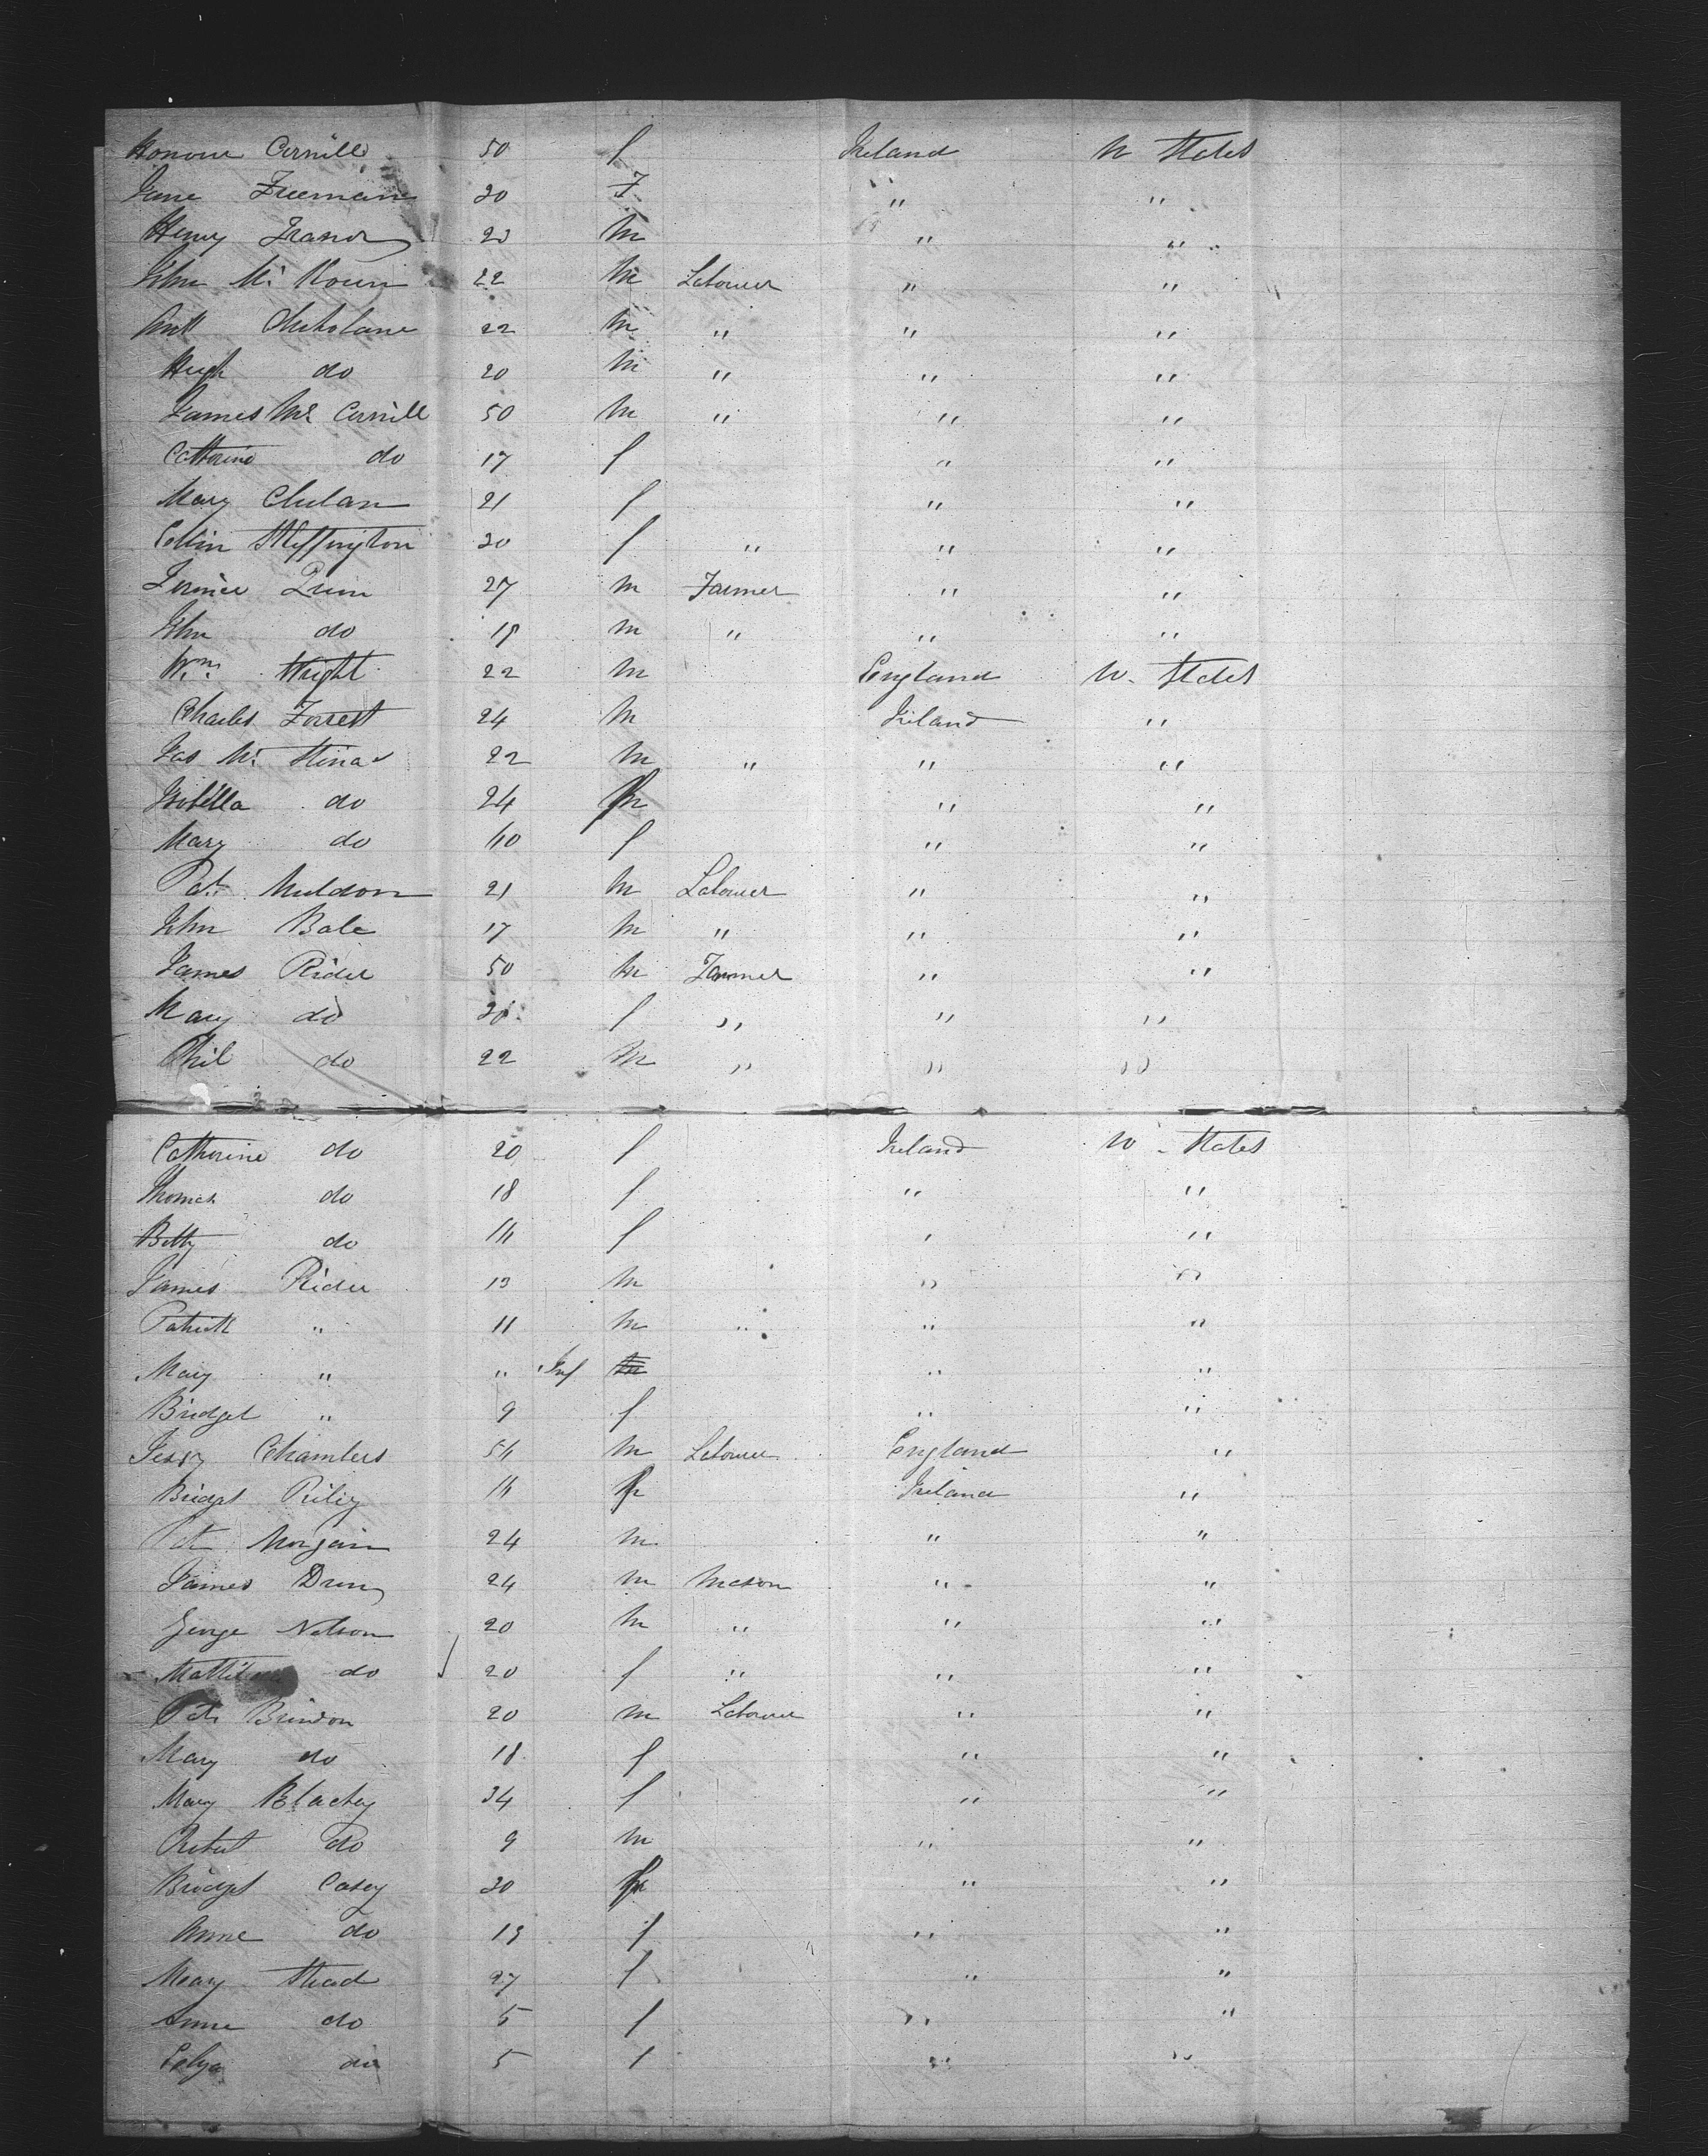 Honour Cornill 50 f Ireland W States
Jane Freeman 20 F " "
Henry 23 m " "
John Mc 22 m Labourer " "
22 m " " "
Hugh do 20 m " " "
James Mc Cornill 50 m " " "
Catherine do 17 f " "
Mary 21 f " "
Skeffington 20 f " " "
Quin 27 m Farmer " "
John do 19 m " " "
Wm. Wright 22 m England W. States
Charles Forrest 24 m Ireland "
Jas Mc 22 m " " "
Isabella do 24 f " "
Mary do 60 f " "
Pat. Muldoon 21 m Labourer " "
John Bale 17 m " " "
James Rider 50 m Farmer " "
Mary do f " " "
Phil do 22 m " " "
Catherine do 20 f Ireland W. States
Thomas do 18 f " "
Betty do 16 f " "
James Rider 13 m " "
Patrick " 11 m " " "
Mary " " Inf " "
Bridget " 9 f " "
Chambers 56 m Labourer England "
Bridget Riley 16 f Ireland "
Pat Morgain 24 m " "
James 24 m Mason " "
George Nelson 20 m " " "
do 20 f " " "
Pat. Brindon 20 m Labourer " "
Mary do 18 f " "
Mary Blackey 34 f " "
Robert do 9 m " "
Bridget Casey 30 f " "
Anne do 13 f " "
Mary 27 f " "
Anne do 5 f " "
do 5 f " "